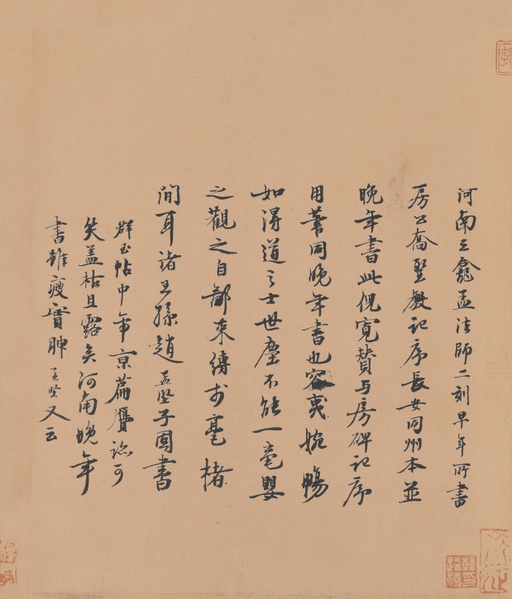 河南三龕孟法師二刻早年所書
房公喬聖教記序長安同州本並
晚年書此倪寬贊与房碑記序
用筆同晚年書也容夷婉暢
如得道之士世塵不能一毫嬰
之觀之自鄙束縛於毫楮
間耳諸王孫趙孟堅子固書
群玉帖中帝京篇贗跡可
笑盖枯且露矣河南晚年
書雖瘦實腴孟堅又云